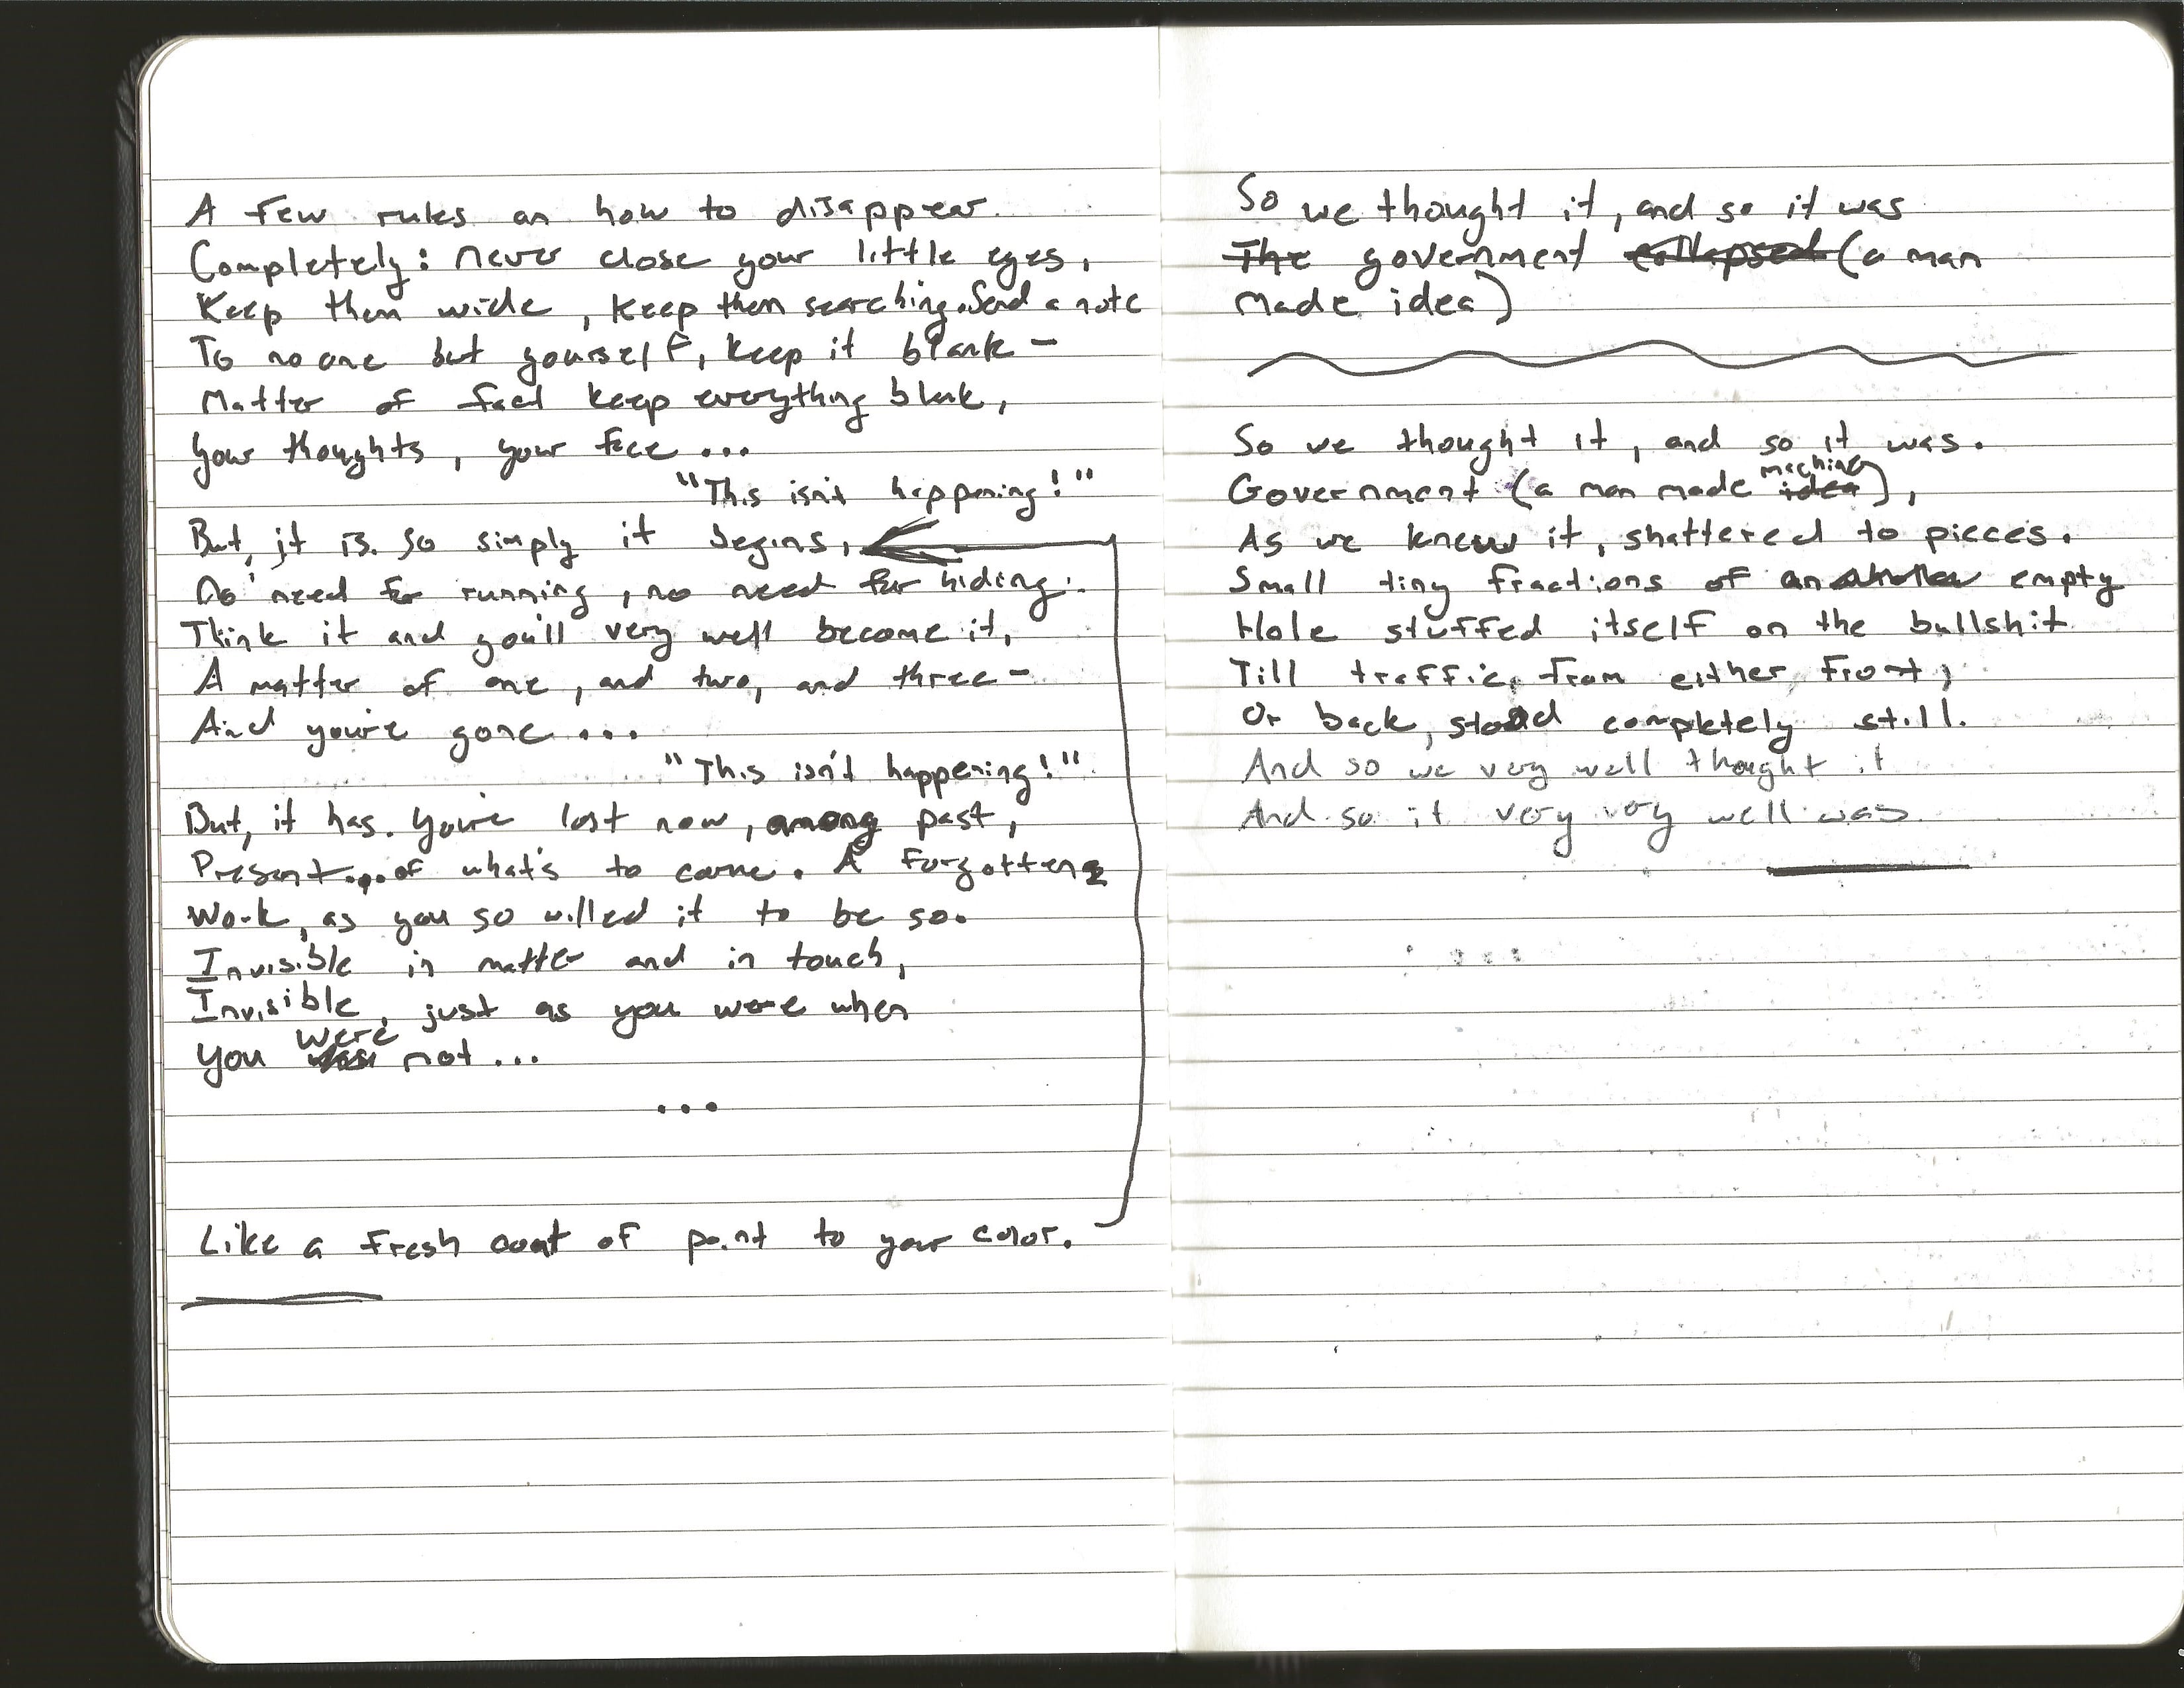 A few rules on how to disappear
Completely: never close your little eyes,
Keep them wide, keep them searching. Send a note
To no one but yourself, keep it blank -
Matter of fact keep everything blank,
Your thoughts, your face ...
"This isn't happening!"
But, it is. So simply it begins,
No need for running, no need for hiding.
Think it and you'll very well become it,
A matter of one, and two, and three -
And you're gone ...
"This isn't happening!"
But, it has. You're lost now, among past,
Present... of what's to come. A forgotten
Work, as you so willed it to be so.
Invisible in matter and in touch,
Invisible, just as you were when
were
You not ...
...
Like a fresh coat of paint to your color.
So we thought it, and so it was
The government collapsed (a man
made idea)
So we thought it, and so it was.
machine
Government (a man made idea),
As we knew it, shattered to pieces.
Small tiny fractions of an empty
Hole stuffed itself on the bullshit
Till traffic, from either front,
Or back, stood completely still.
And so we very well thought it
And so it very very well was